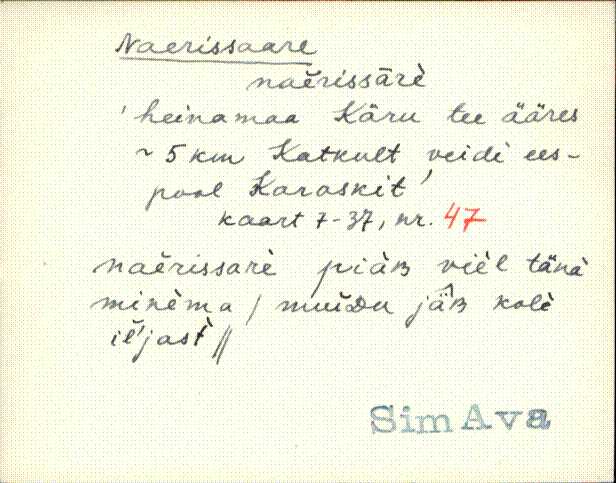 Naerissaare
naĕrissārè
'heinamaa Käru tee ääres
~ 5 km Katkult veidi ees-
pool Karaskit'
kaart 7-37, nr. 47
naĕrissarè piàʙ vièl tänà
minèma / muĭdu jäʙ kolè
iĕljast //
Sim Ava